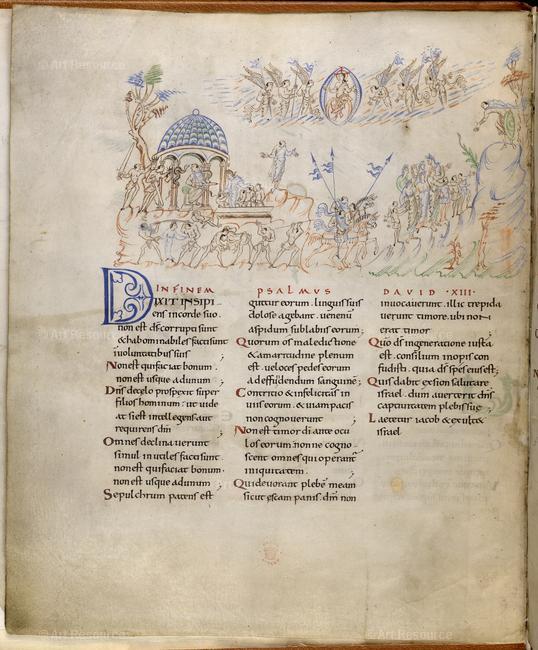 IN FINEM PSALMUS DAVID · XIII ·
DIXIT INSIPI
ens incorde suo.
non est ds corrupti sunt
& habominabiles facti sunt
in uoluntatibus suis
Non est qui faciat bonum.
non est usque ad unum
Dns de celo prospexit super
filios hominum. ut uide
at si est intellegens aut
requirens dm
Omnes declinauerunt
simul inutiles facti sunt
non est qui faciat bonum.
non est usque ad unum
Sepulchrum patens est
guttur eorum. linguis suis
dolose agebant. uenenu
aspidum sub labiis eorum;
Quorum os maledictione
& amaritudine plenum
est. ueloces pedes eorum
ad effundendum sanguine;
Contritio & infelicitas in
uiis eorum. & uiam pacis
non cognouerunt
Non est timor di ante ocu
los eorum. nonne cogno
scent omnes qui operant
iniquitatem.
Qui deuorant plebe meam
sicut escam panis. dm non
inuocauerunt. illic trepida
uerunt timore. ubi non
erat timor
Quo ds in generatione iusta
est. consilium inopis con
fudisti. quia ds spes eius est;
Quis dabit ex sion salutare
israel. dum auerterit dns
captiuitatem plebis sue
Laetetur iacob & exultet
israel
© Art Resource
© Art Resource
© Art Resource
© Art Resource